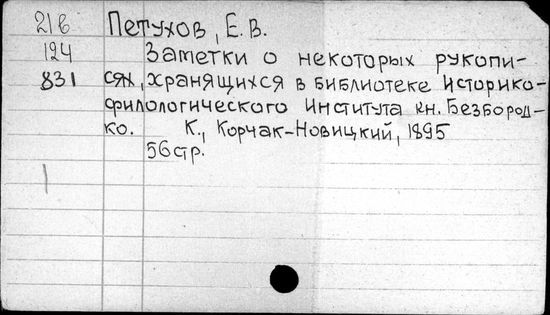 21в Петухов, Е. В.
124 Заметки о некоторых рукопи-
831 сях, хранящихся в библиотеке Историко-
филологического Института кн. Безбород-
ко. К., Корчак-Новицкий, 1895
56стр.